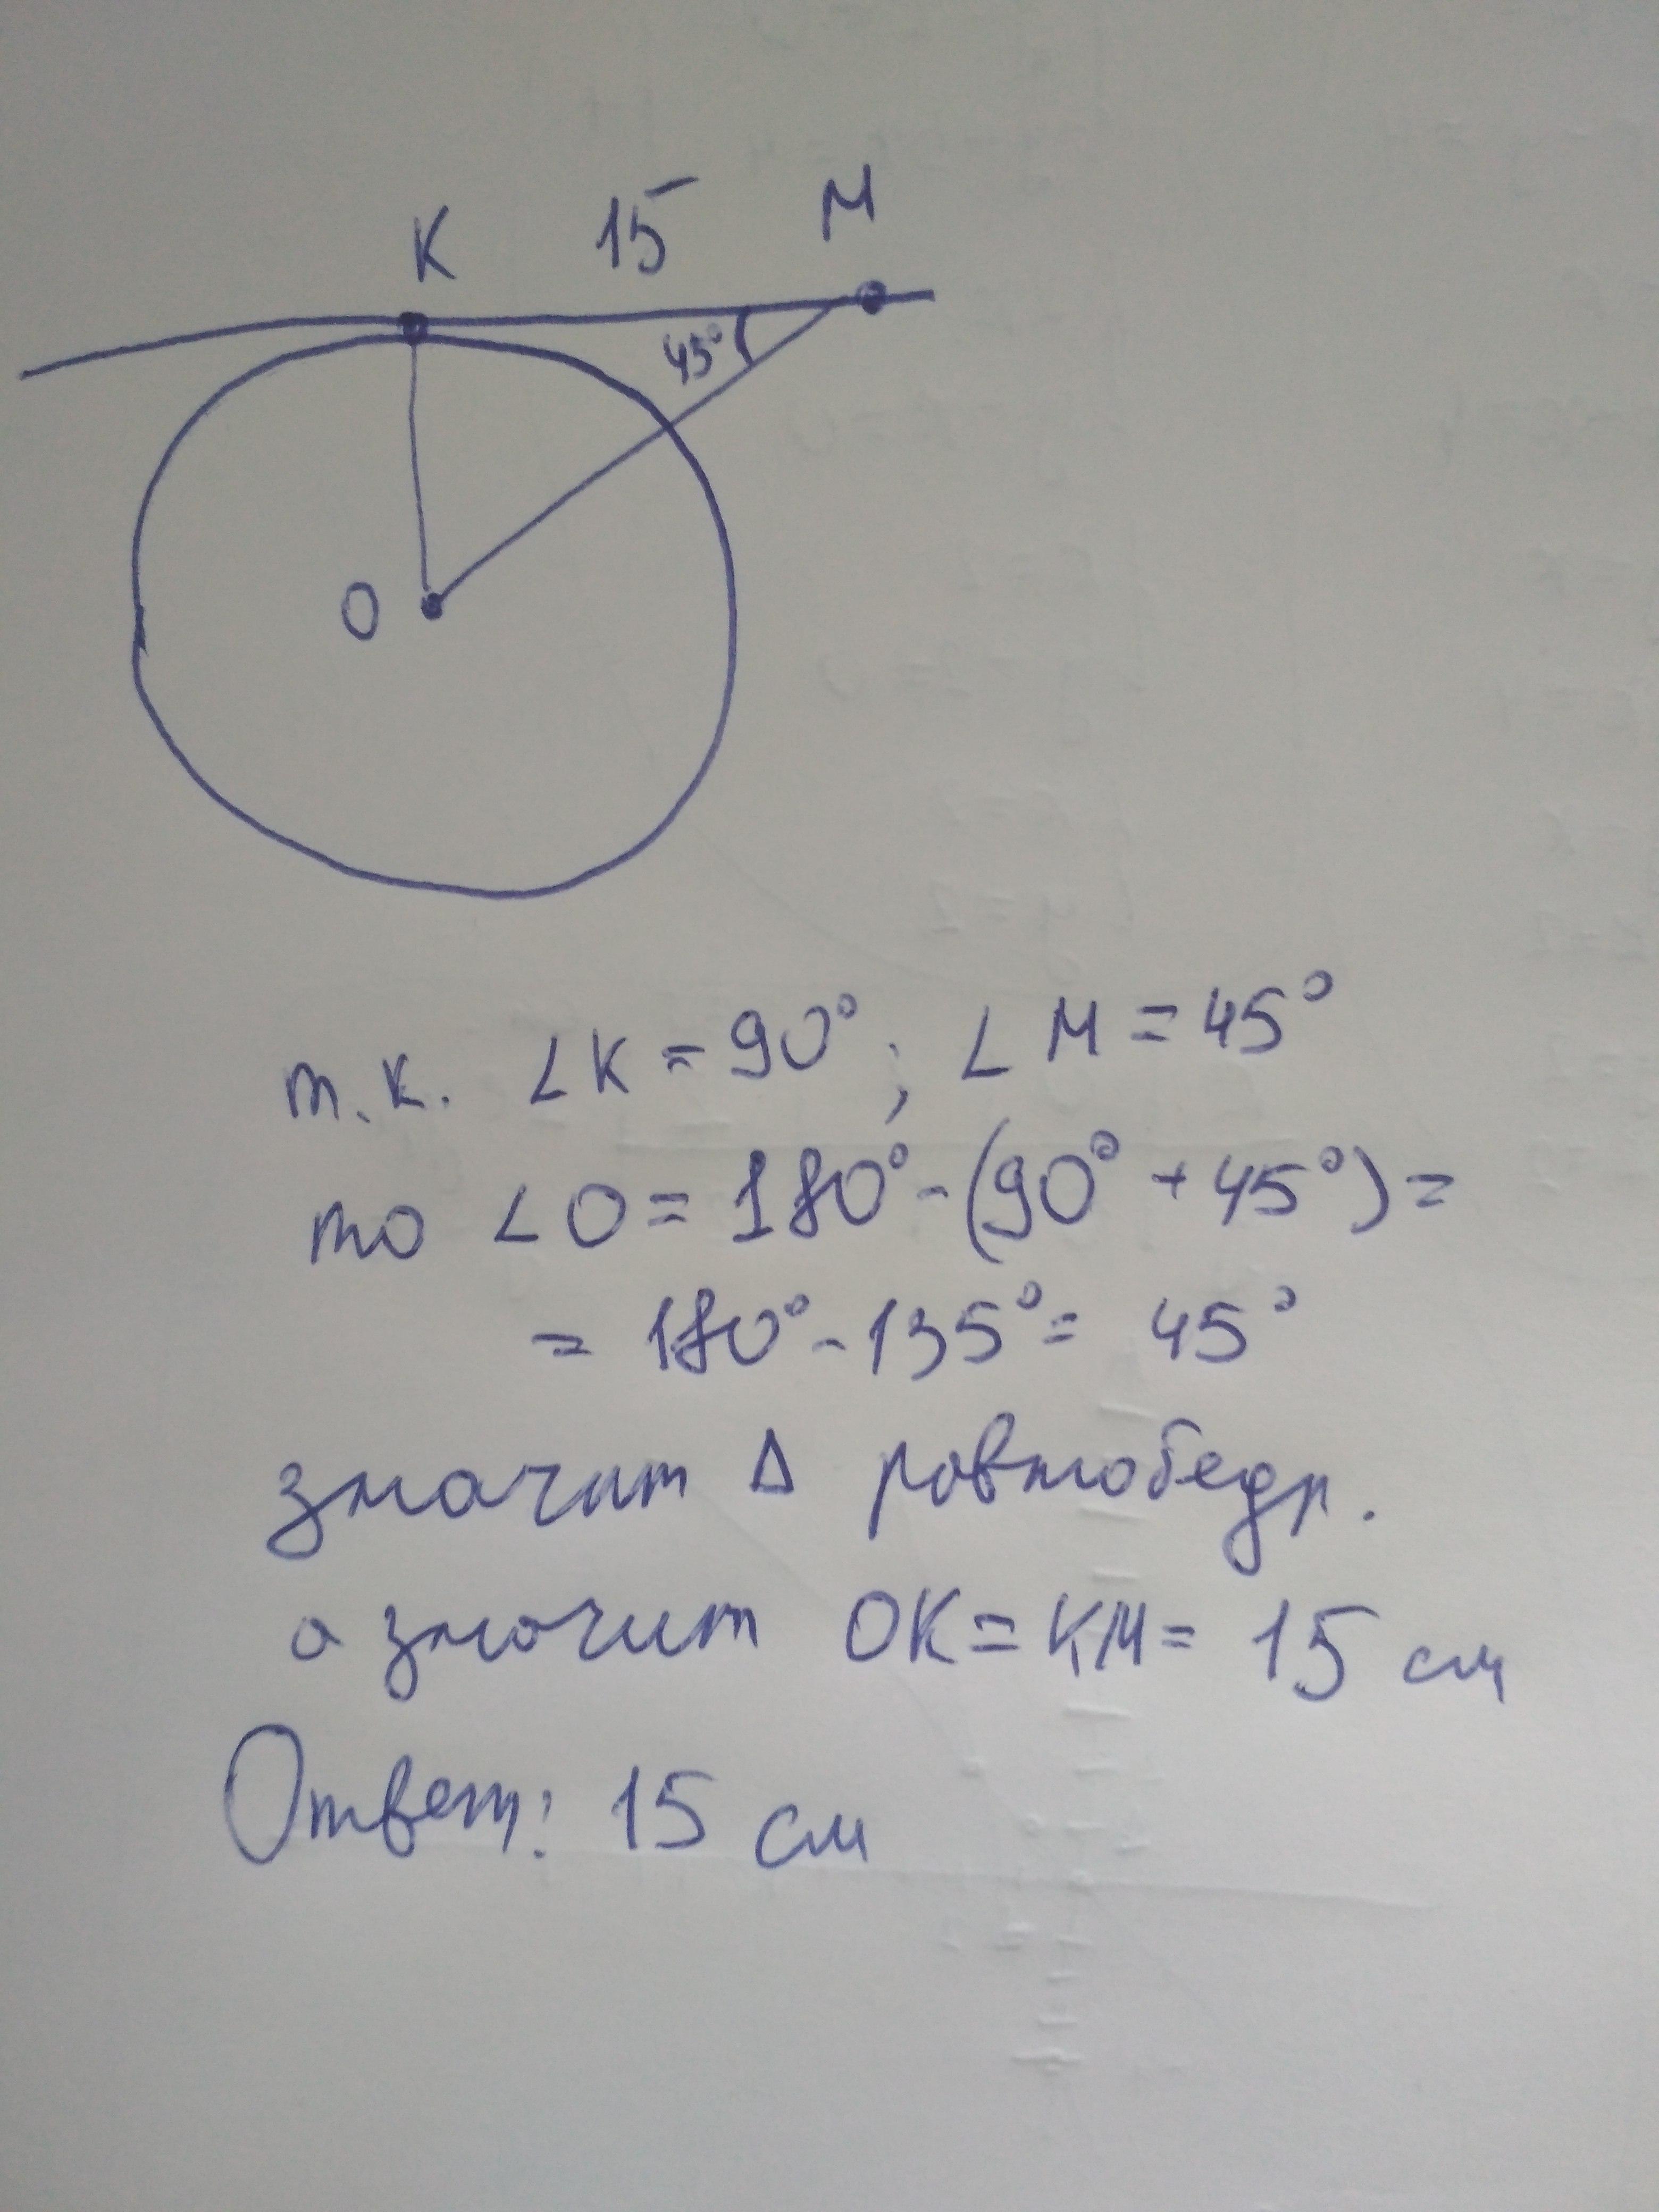 К 15 М
45°
О
т.к. ∠К = 90°; ∠М = 45°
то ∠О = 180° - (90° + 45°) =
= 180° - 135° = 45°
значит Δ равнобедр.
а значит ОК = КМ = 15 см
Ответ: 15 см